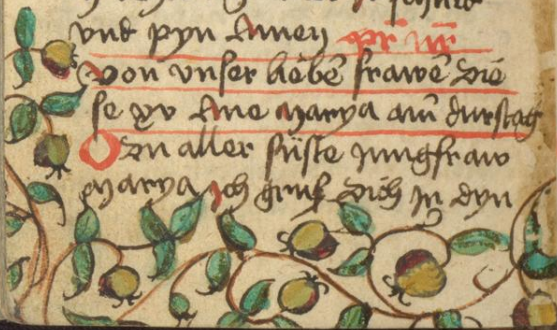 vnd pyn Amen pr nr
von vnser liebē frawē Die
se xv Aue marya am durstag
O Du aller süste Jungfraw
marya Jch grüß Dich Jn dyn